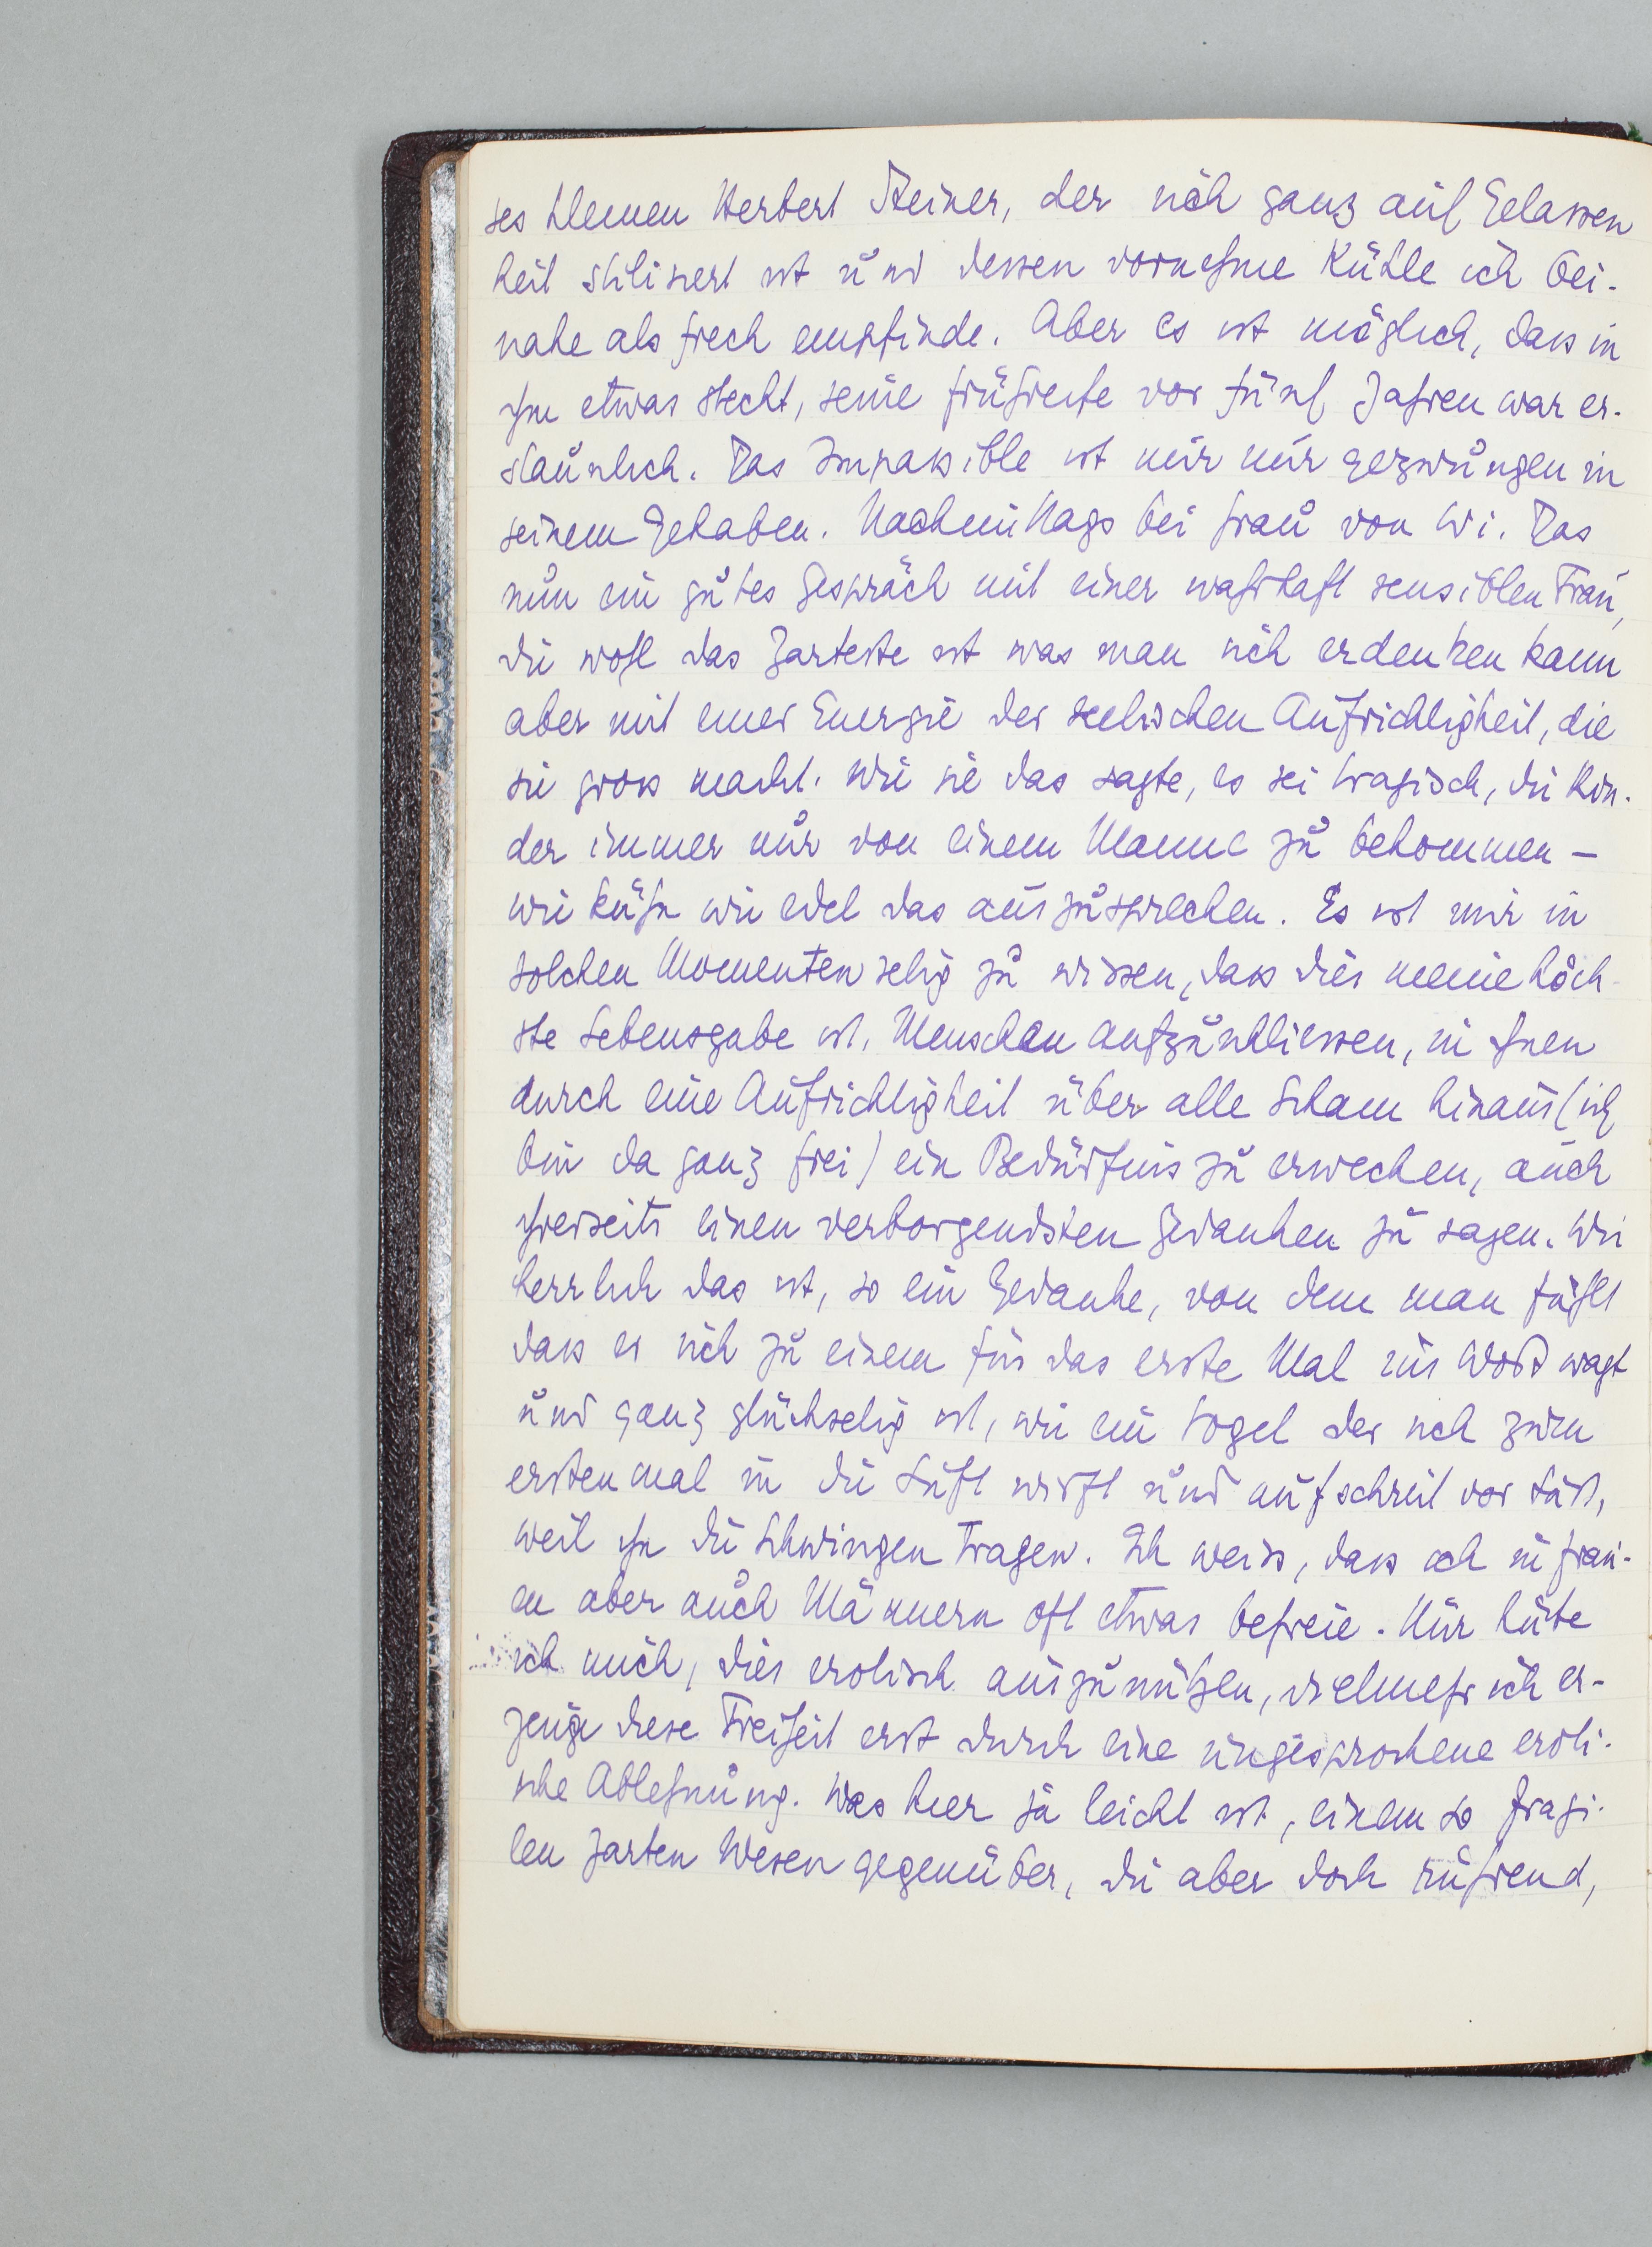 ses kleinen Herbert Steiner, der sich ganz auf Gelassen
heit stilisiert ist und dessen vornehme Kühle ich bei-
nahe als frech empfinde. Aber es ist möglich, dass in
ihm etwas steckt, seine Frühreife vor fünf Jahren war er-
staunlich. Das Impassible ist mir nur gezwungen in
seinem Gehaben. Nachmittags bei Frau von Wi. Das
nun ein gutes Gespräch mit einer wahrhaft sensiblen Frau,
die wohl das Zarteste ist was man sich erdenken kann
aber mit einer Energie der seelischen Aufrichtigkeit, die
sie gross macht. Wie sie das sagte, es sei tragisch, die Kin-
der immer nur von einem Manne zu bekommen –
wie kühn wie edel das auszusprechen. Es ist mir in
solchen Momenten selig zu wissen, dass dies meine höch-
ste Lebensgabe ist, Menschen aufzuschliessen, in ihnen
durch eine Aufrichtigkeit über alle Scham hinaus (ich
bin da ganz frei) ein Bedürfnis zu erwecken, auch
ihrerseits einen verborgendsten Gedanken zu sagen. Wie
herrlich das ist, so ein Gedanke, von dem man fühlt
dass er sich zu einem für das erste Mal ins Wort wagt
und ganz glückselig ist, wie ein Vogel der sich zum
erstenmal in die Luft wirft und aufschreit vor Lust,
weil ihn die Schwingen tragen. Ich weiss, dass ich in Frau-
en aber auch Männern oft etwas befreie. Nur hüte
ich mich, dies erotisch auszunützen, vielmehr ich er-
zeuge diese Freiheit erst durch eine ungesprochene eroti-
sche Ablehnung. Was hier ja leicht ist, einem so fragi-
len zarten Wesen gegenüber, die aber doch rührend,